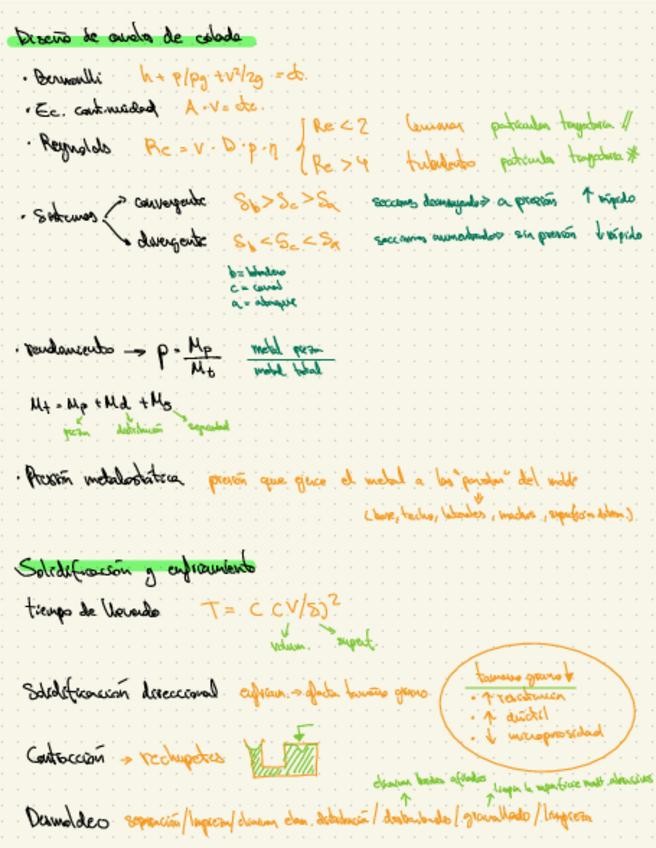 Diseño de canales de colada
· Bernoulli h + p/ρg + v²/2g = ctc.
· Ec. continuidad A · v = ctc.
· Reynolds Re = v · D · ρ · η
Re < 2 laminar partículas trayectoria //
Re > 4 turbulento partícula trayectoria
· Sistemas
convergente Sb > Sc > Sa secciones a presión ↑ rápido
divergente Sb < Sc < Sa secciones sin presión ↓ rápido
b = bebedero
c = canal
a = ataque
· rendimiento → ρ = Mp / Mt metal pieza / metal total
Mt = Mp + Md + Ms
pieza distribución seguridad
· Presión metalostática presión que ejerce el metal a las "paredes" del molde
(base, techo, laterales, machos, superficie
Solidificación y enfriamiento
tiempo de llenado T = C (V/S)²
volum. superf.
Solidificación direccional enfriam. → afecta tamaño grano.
tamano grano ↓
· ↑ resistencia
· ↑ dúctil
· ↓ microporosidad
Contracción → rechupetes
eliminar bordes afilados limpia la superficie mat. abrasivos
Desmoldeo separación/limpieza/eliminan elem. distribución/ /granallado/limpieza